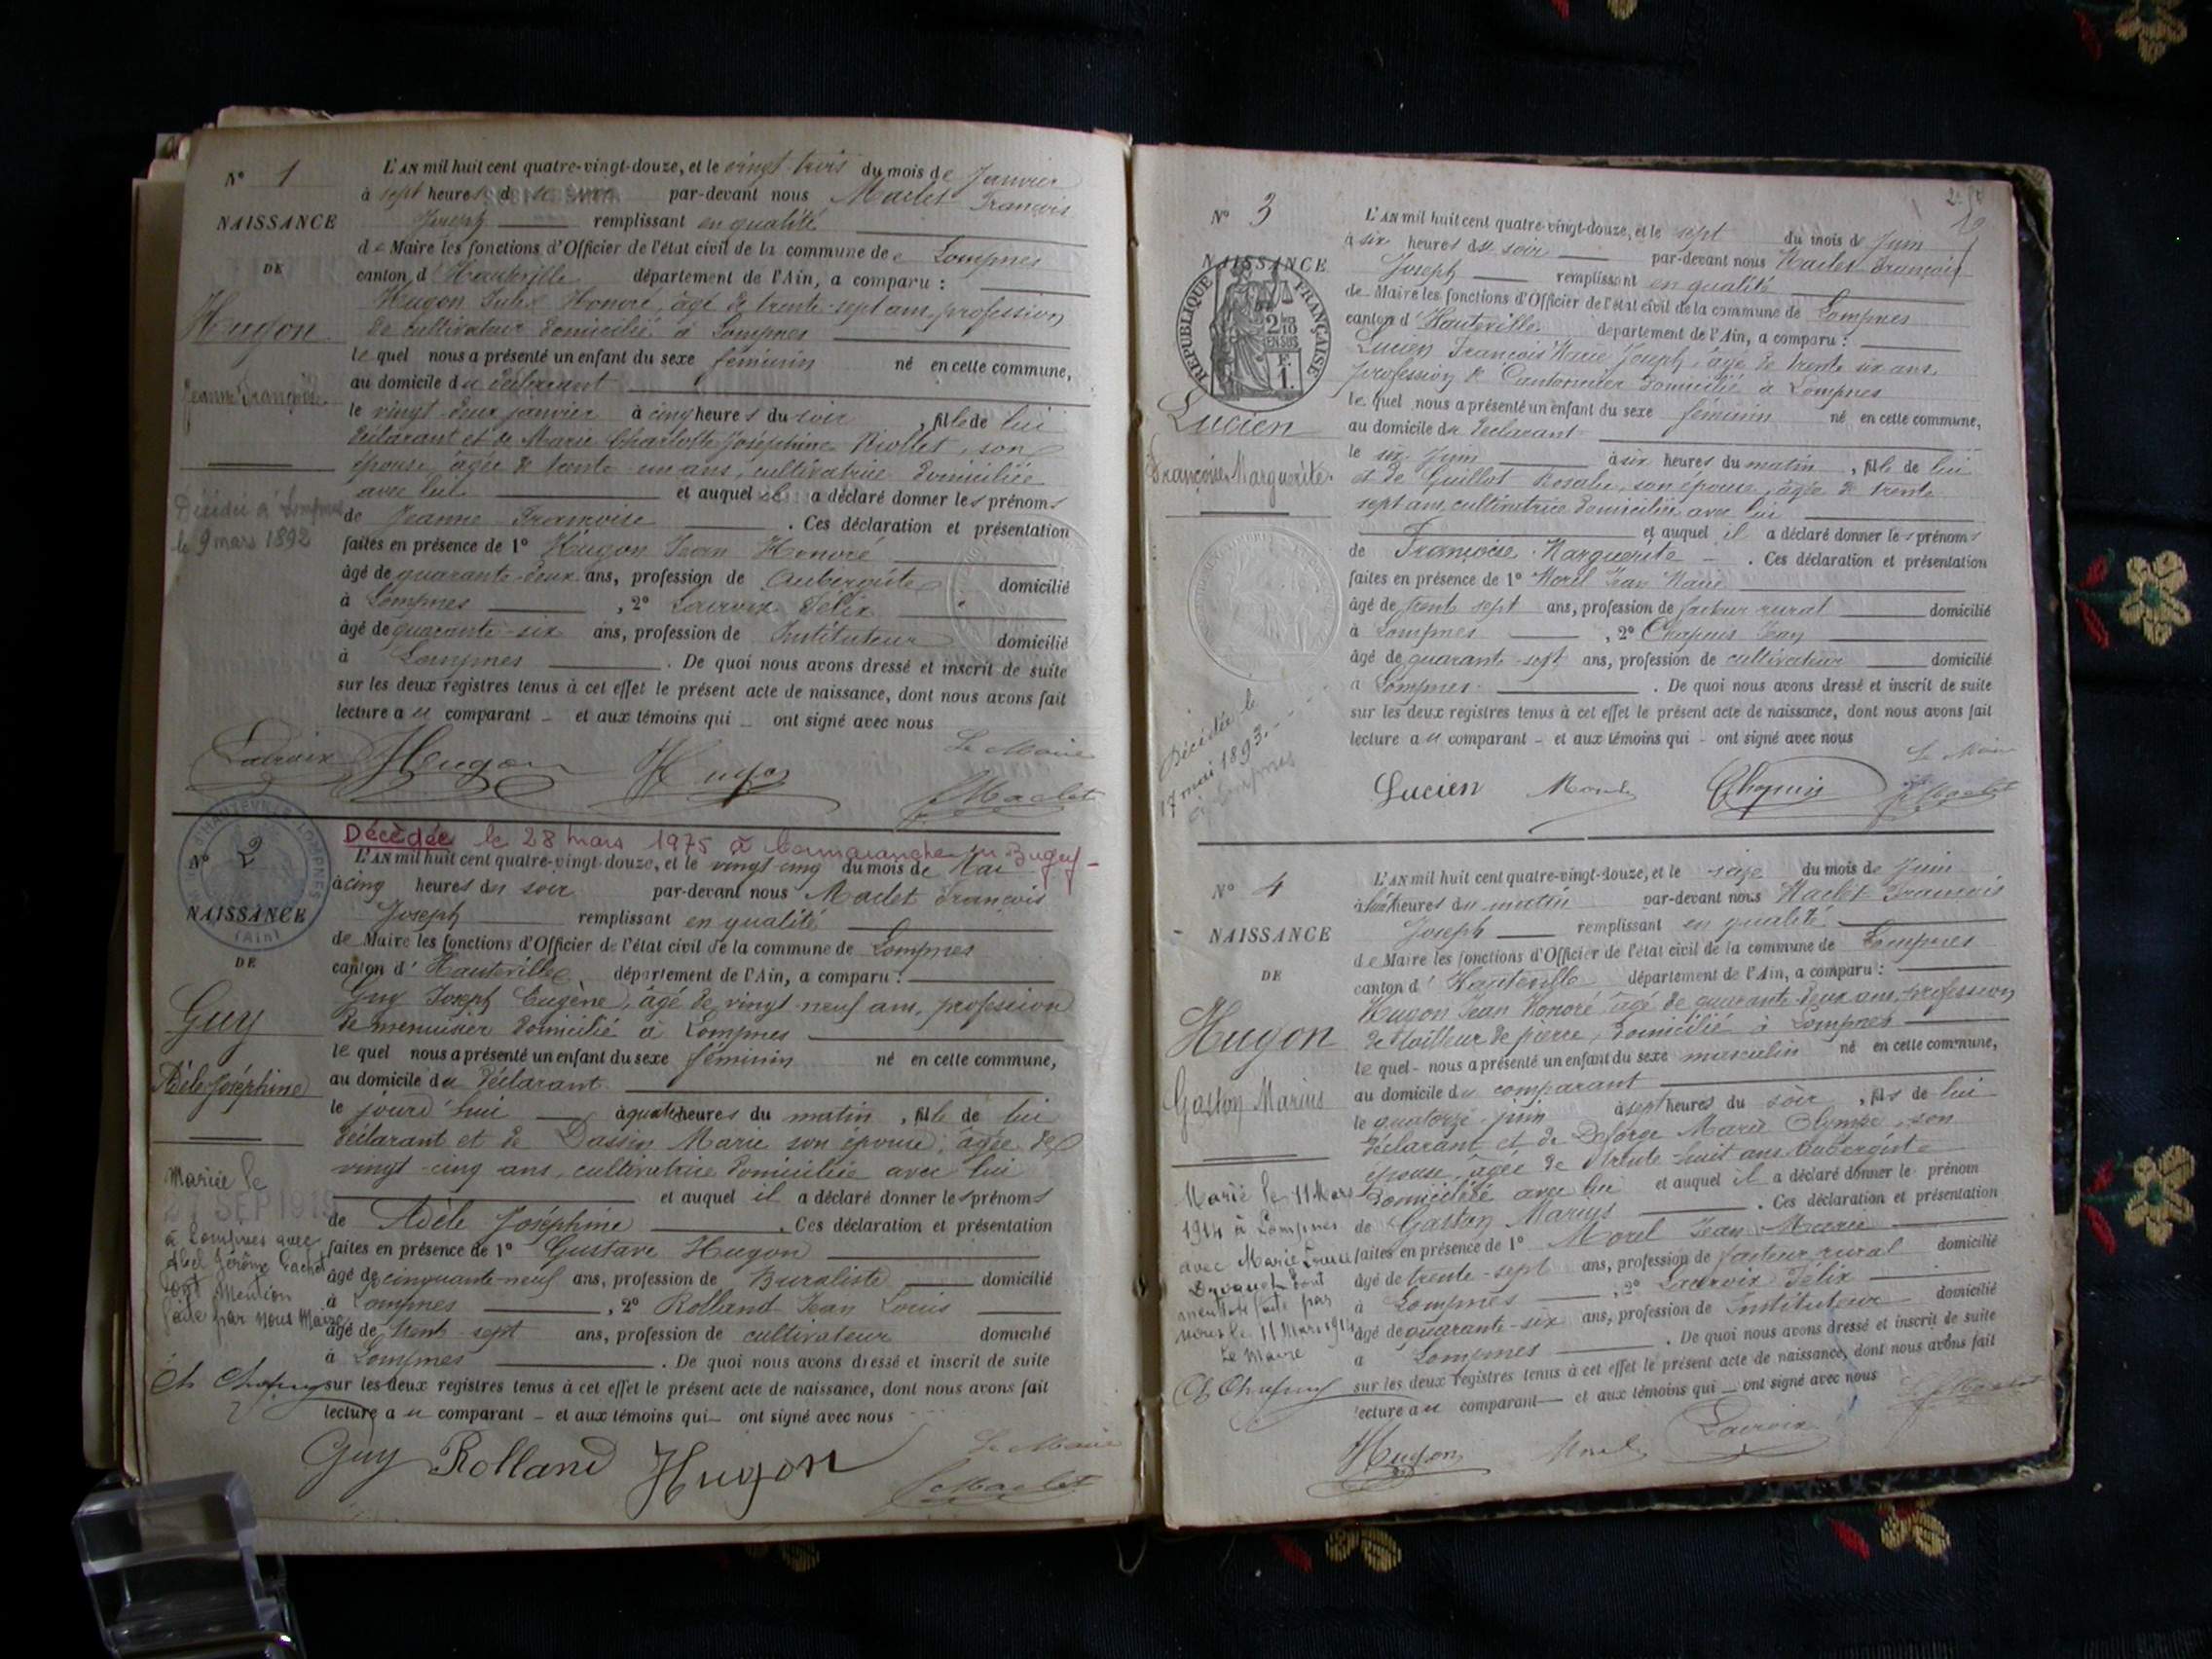 N° 1
NAISSANCE
DE
Hugon
Jeanne Françoise
Décédée à Lompnes
le 9 mars 1892
L'AN mil huit cent quatre-vingt-douze, et le vingt trois du mois de Janvier
à sept heures du soir par-devant nous Maclet François
Joseph remplissant en qualité
de Maire les fonctions d'Officier de l'état civil de la commune de Lompnes
canton d'Hauteville département de l'Ain, a comparu :
Hugon Jules Honoré, âgé de trente-sept ans, profession
de cultivateur domicilié à Lompnes
lequel nous a présenté un enfant du sexe féminin né en cette commune,
au domicile du déclarant
le vingt deux janvier à cinq heures du soir, fille de lui
déclarant et de Marie Charlotte Joséphine Riollet, son
épouse, âgée de trente un ans, cultivatrice domiciliée
avec lui et auquel il a déclaré donner les prénoms
de Jeanne Françoise. Ces déclaration et présentation
faites en présence de 1° Hugon Jean Honoré
âgé de quarante-deux ans, profession de Aubergiste domicilié
à Lompnes, 2° Lacroix Félix
âgé de quarante-six ans, profession de Instituteur domicilié
à Lompnes. De quoi nous avons dressé et inscrit de suite
sur les deux registres tenus à cet effet le présent acte de naissance, dont nous avons fait
lecture au comparant et aux témoins qui ont signé avec nous
Le Maire
Lacroix Hugon Hugon Maclet
N° 2
NAISSANCE
DE
Guy
Adèle Joséphine
HAUTEVILLE LOMPNES
(Ain)
Mariée le
27 SEP 1919
à Lompnes avec
Abel Jérôme Gachet
dont Mention
faite par nous Maire
Ch Chapuy
Décèdée le 28 mars 1975 à Cormaranche en Bugey -
L'AN mil huit cent quatre-vingt-douze, et le vingt-cinq du mois de Mai
à cinq heures du soir par-devant nous Maclet François
Joseph remplissant en qualité
de Maire les fonctions d'Officier de l'état civil de la commune de Lompnes
canton d'Hauteville département de l'Ain, a comparu :
Guy Joseph Eugène, âgé de vingt-neuf ans, profession
de menuisier domicilié à Lompnes
lequel nous a présenté un enfant du sexe féminin né en cette commune,
au domicile du déclarant
le jourd'hui à quatre heures du matin, fille de lui
déclarant et de Dassin Marie son épouse, âgée de
vingt-cinq ans, cultivatrice domiciliée avec lui
et auquel il a déclaré donner les prénoms
de Adèle Joséphine. Ces déclaration et présentation
faites en présence de 1° Gustave Hugon
âgé de cinquante-neuf ans, profession de Buraliste domicilié
à Lompnes, 2° Rolland Jean Louis
âgé de trente-sept ans, profession de cultivateur domicilié
à Lompnes. De quoi nous avons dressé et inscrit de suite
sur les deux registres tenus à cet effet le présent acte de naissance, dont nous avons fait
lecture au comparant et aux témoins qui ont signé avec nous
Le Maire
Guy Rolland Hugon Maclet
N° 3
NAISSANCE
RÉPUBLIQUE FRANÇAISE
Lucien
Françoise Marguerite
Décédée le
17 mai 1893
à Lompnes
L'AN mil huit cent quatre-vingt-douze, et le sept du mois de Juin
à six heures du soir par-devant nous Maclet François
Joseph remplissant en qualité
de Maire les fonctions d'Officier de l'état civil de la commune de Lompnes
canton d'Hauteville département de l'Ain, a comparu :
Lucien François Marie Joseph, âgé de trente six ans
profession de Cantonnier domicilié à Lompnes
lequel nous a présenté un enfant du sexe féminin né en cette commune,
au domicile du déclarant
le six Juin à six heures du matin, fille de lui
et de Guillot Rosalie, son épouse, âgée de trente
sept ans, cultivatrice domiciliée avec lui
et auquel il a déclaré donner les prénoms
de Françoise Marguerite. Ces déclaration et présentation
faites en présence de 1° Morel Jean Marie
âgé de trente sept ans, profession de facteur rural domicilié
à Lompnes, 2° Chapuis Jean
âgé de quarante-sept ans, profession de cultivateur domicilié
à Lompnes. De quoi nous avons dressé et inscrit de suite
sur les deux registres tenus à cet effet le présent acte de naissance, dont nous avons fait
lecture au comparant et aux témoins qui ont signé avec nous
Le Maire
Lucien Morel Chapuis Maclet
N° 4
NAISSANCE
DE
Hugon
Gaston Marius
Marié le 11 Mars
1914 à Lompnes
avec Marie Louise
dont
mention faite par
nous le 11 Mars 1914
Le Maire
Ch Chapuy
L'AN mil huit cent quatre-vingt-douze, et le seize du mois de Juin
à huit heures du matin par-devant nous Maclet François
Joseph remplissant en qualité
de Maire les fonctions d'Officier de l'état civil de la commune de Lompnes
canton d'Hauteville département de l'Ain, a comparu :
Hugon Jean Honoré âgé de quarante-deux ans, profession
de tailleur de pierre, domicilié à Lompnes
lequel nous a présenté un enfant du sexe masculin né en cette commune,
au domicile du comparant
le quatorze juin à sept heures du soir, fils de lui
déclarant et de Deforge Marie Olympe, son
épouse, âgée de trente-huit ans Aubergiste
domiciliée avec lui et auquel il a déclaré donner le prénom
de Gaston Marius. Ces déclaration et présentation
faites en présence de 1° Morel Jean Marie
âgé de trente-sept ans, profession de facteur rural domicilié
à Lompnes, 2° Lacroix Félix
âgé de quarante-six ans, profession de Instituteur domicilié
à Lompnes. De quoi nous avons dressé et inscrit de suite
sur les deux registres tenus à cet effet le présent acte de naissance, dont nous avons fait
lecture au comparant et aux témoins qui ont signé avec nous
Hugon Morel Lacroix Maclet